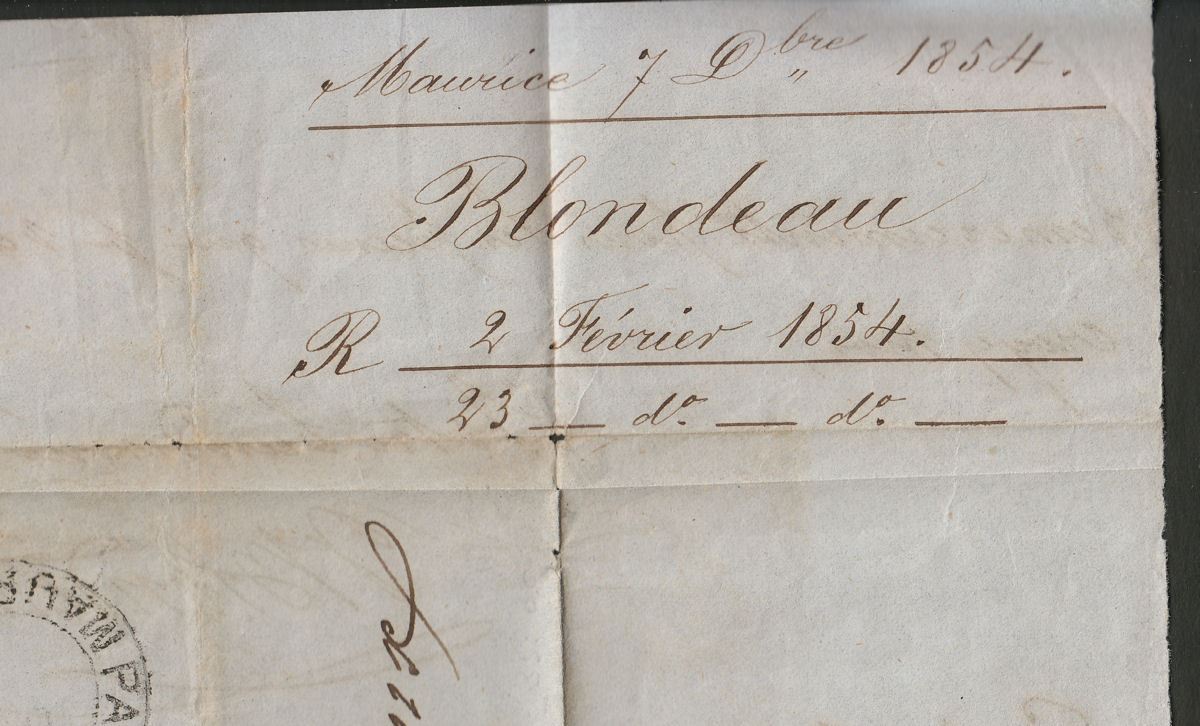 Maurice 7 D^bre 1854.
Blondeau
R 2 Février 1854.
23 — d° — d° —
MAUR
PA